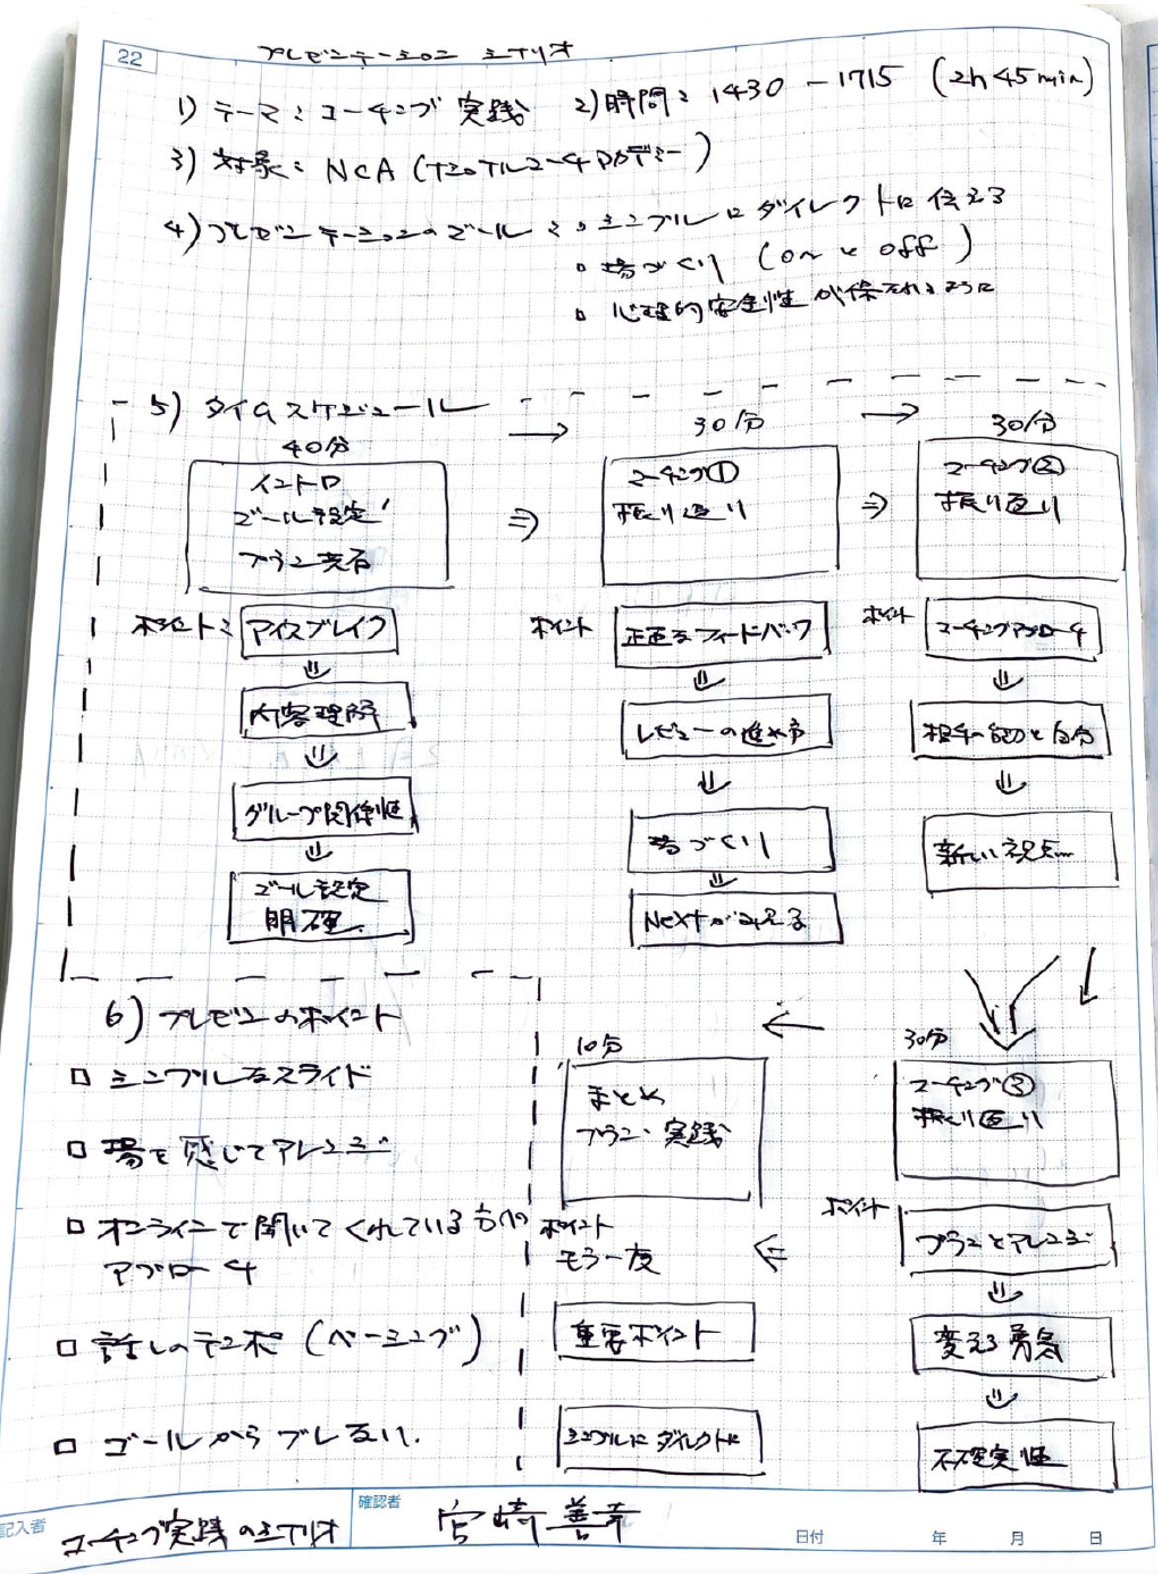 22
プレゼンテーション シナリオ
1) テーマ: コーチング 実践 2) 時間: 1430 - 1715 (2h 45min)
3) 対象: NCA (ナショナルコーチアカデミー)
4) プレゼンテーションのゴール: ▫ シンプルにダイレクトに伝える
▫ 場づくり (on と off)
▫ 心理的安全性が保たれるように
5) タイムスケジュール
40分
イントロ
ゴール設定
プラン共有
ポイント:
アイスブレイク
内容理解
グループ関係性
ゴール設定
明確
30分
コーチング①
振り返り
ポイント
正直なフィードバック
レビューの進め方
場づくり
Nextがみえる
30分
コーチング②
振り返り
ポイント
コーチングアプローチ
相手の能力と自分
新しい視点
30分
コーチング③
振り返り
ポイント
プランとアレンジ
変える勇気
不確実性
10分
まとめ
プラン・実践
ポイント
もう一度
重要ポイント
シンプルに ダイレクトに
6) プレゼンのポイント
□ シンプルなスライド
□ 場を感じてアレンジ
□ オンラインで聞いてくれている方への
アプローチ
□ 話しのテンポ (ペーシング)
□ ゴールからブレない.
記入者
コーチング実践のシナリオ
確認者
宮崎善幸
日付 年 月 日